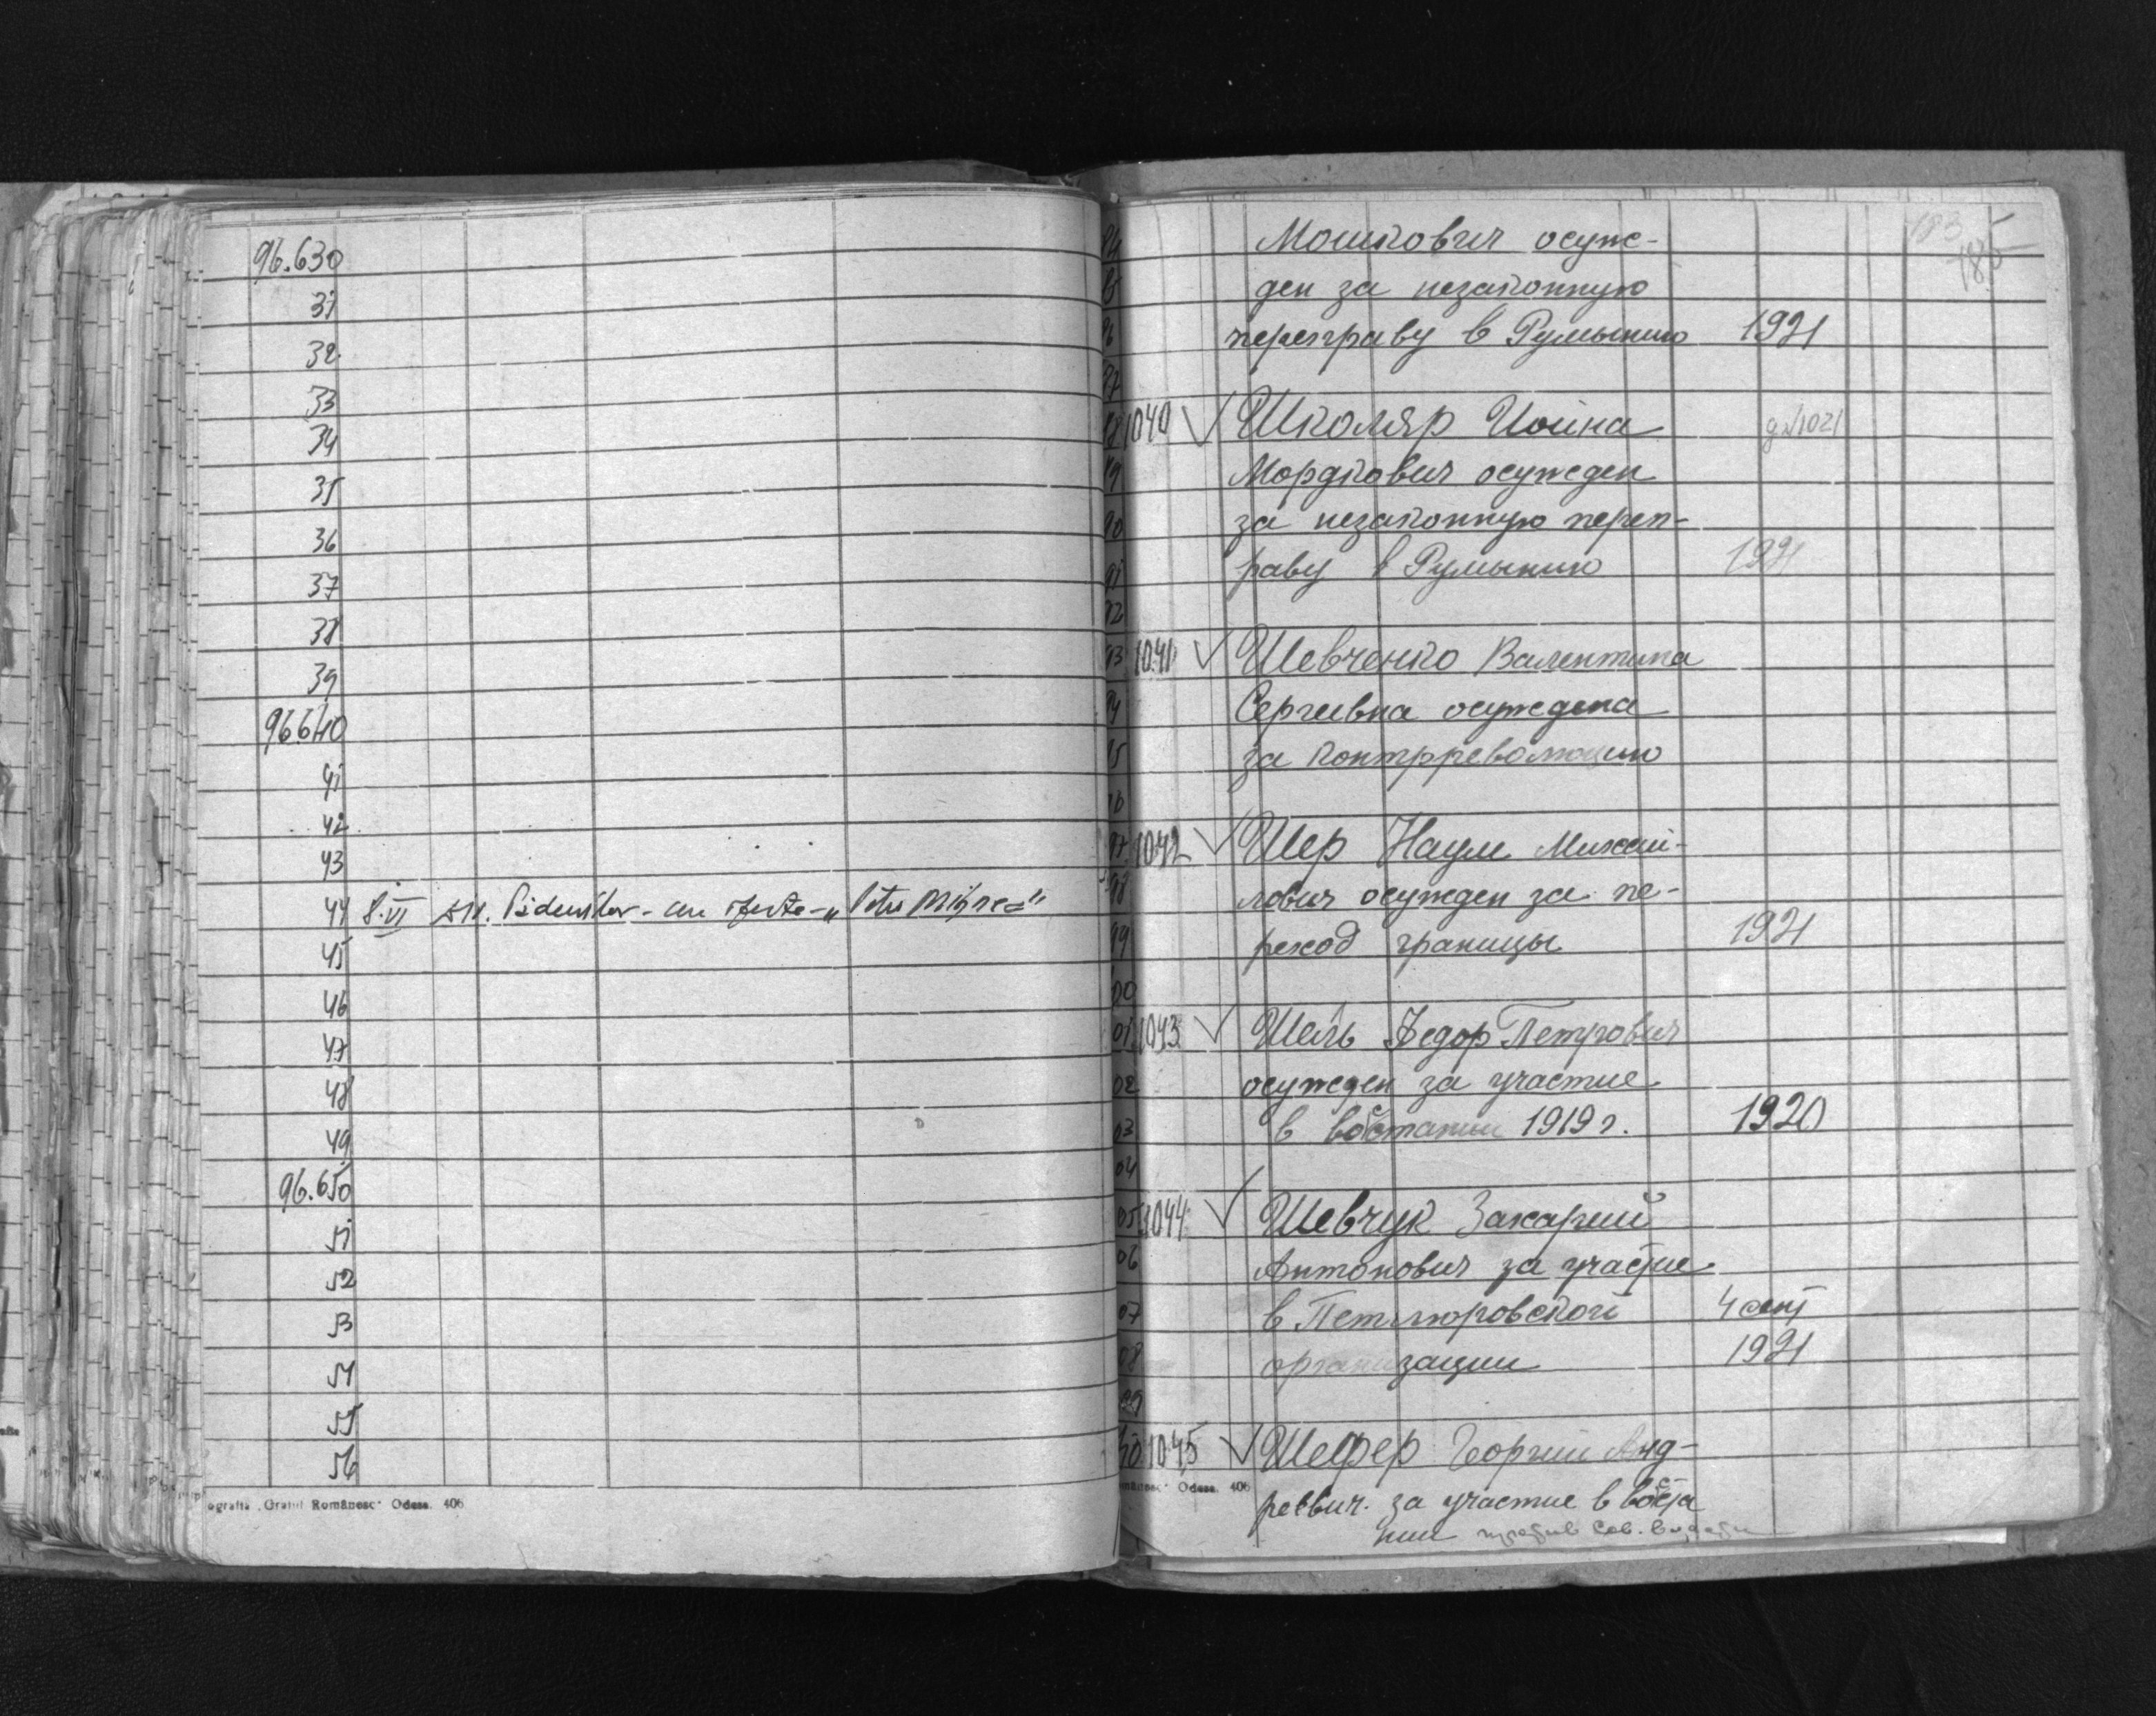 96.630
31
32
33
34
35
36
37
38
39
96640
41
42
43
44 8.VI
45
46
47
48
49
96.650
51
52
53
54
55
56
ografia „Graiul Românesc" Odesa. 406
183
185
Мошкович осуж-
ден за незаконную
переправу в Румынию 1921
1040 Школяр Иойна
Мордкович осужден
за незаконную переп-
раву в Румынию 1921
1041 Шевченко Валентина
Сергеевна осуждена
за контрреволюцию
1042 Шер Наум Михай-
лович осужден за пе-
реход границы 1921
1043 Шель Федор Петрович
осужден за участие
в востании 1919 г. 1920
1044 Шевчук Захарий
Антонович за участие
в Петлюровской 4 сент
организации 1921
1045 Шефер Георгий Анд-
реевич. за участие в воста
нии против Сов. власти
Odesa. 406